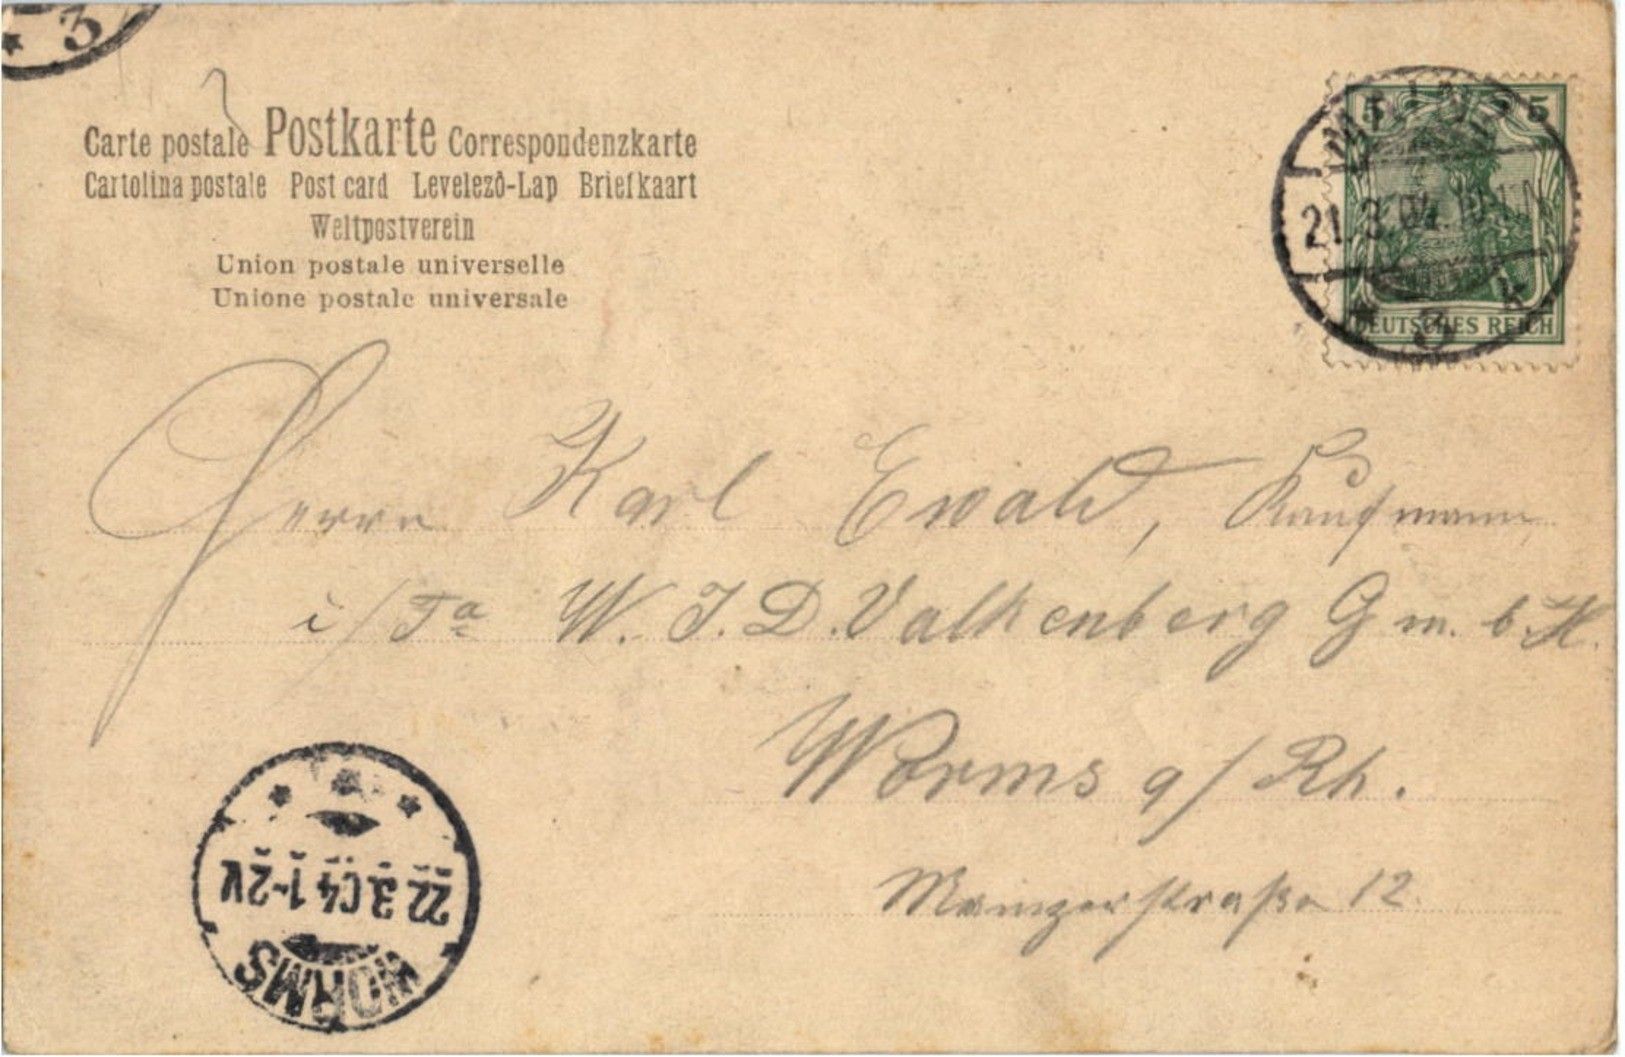 3
Carte postale Postkarte Correspondenzkarte
Cartolina postale Post card Levelezô-Lap Briefkaart
Weltpostverein
Union postale universelle
Unione postale universale
5 5
21.3.04.10
DEUTSCHES REICH
3
Herrn Karl Ewald, Kaufmann
i/Fa W. J. D. Valkenberg G m. b. H.
Worms a/Rh.
Mainzerstraße 12.
22.3.04 1-2V
WORMS